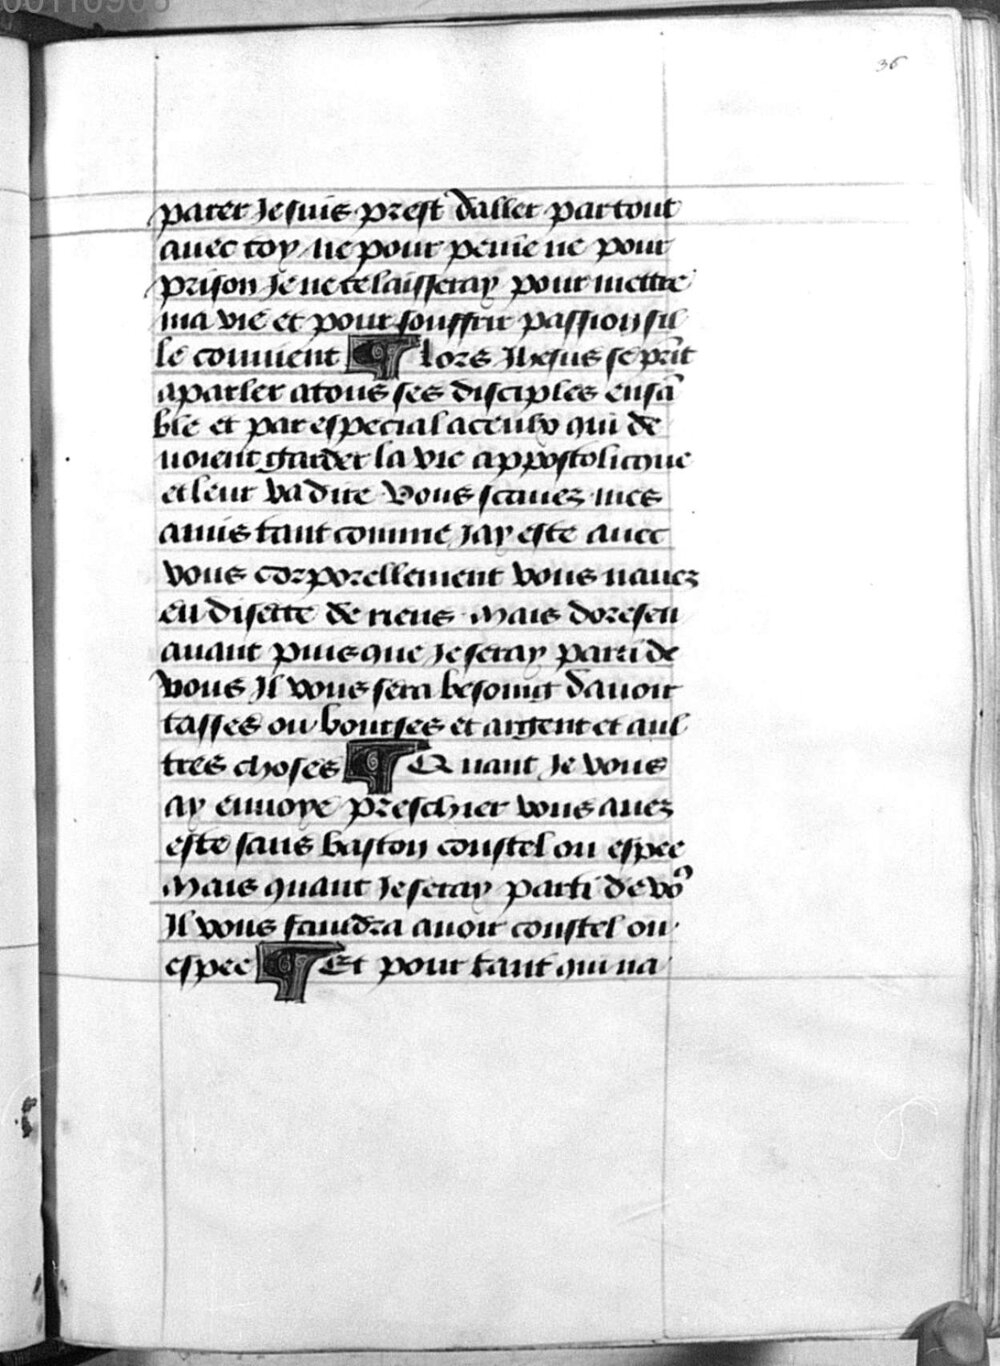 36
parer Je suis prest daller partout
avec toy ne pour peine ne pour
prison Je ne te laisseray pour mettre
ma vie et pour souffrir passion sil
le convient ¶ Lors Jhesus se prīt
a parler a tous ses disciples ensā
ble et par especial a ceulx qui de
voient garder la vie appostolicque
et leur va dire Vous scavez mes
amis tant comme Jay este avec
vous corporellement vous navez
eu disette de riens Mais doresen
avant puis que Je seray parti de
vous Il vous sera besoing davoir
tasses ou bourses et argent et aul
tres choses ¶ Quant Je vous
ay envoye preschier vous avez
este sans baston coustel ou espee
Mais quant Je seray parti de voꝰ
Il vous faudra avoir coustel ou
espee ¶ Et pour tant qui na